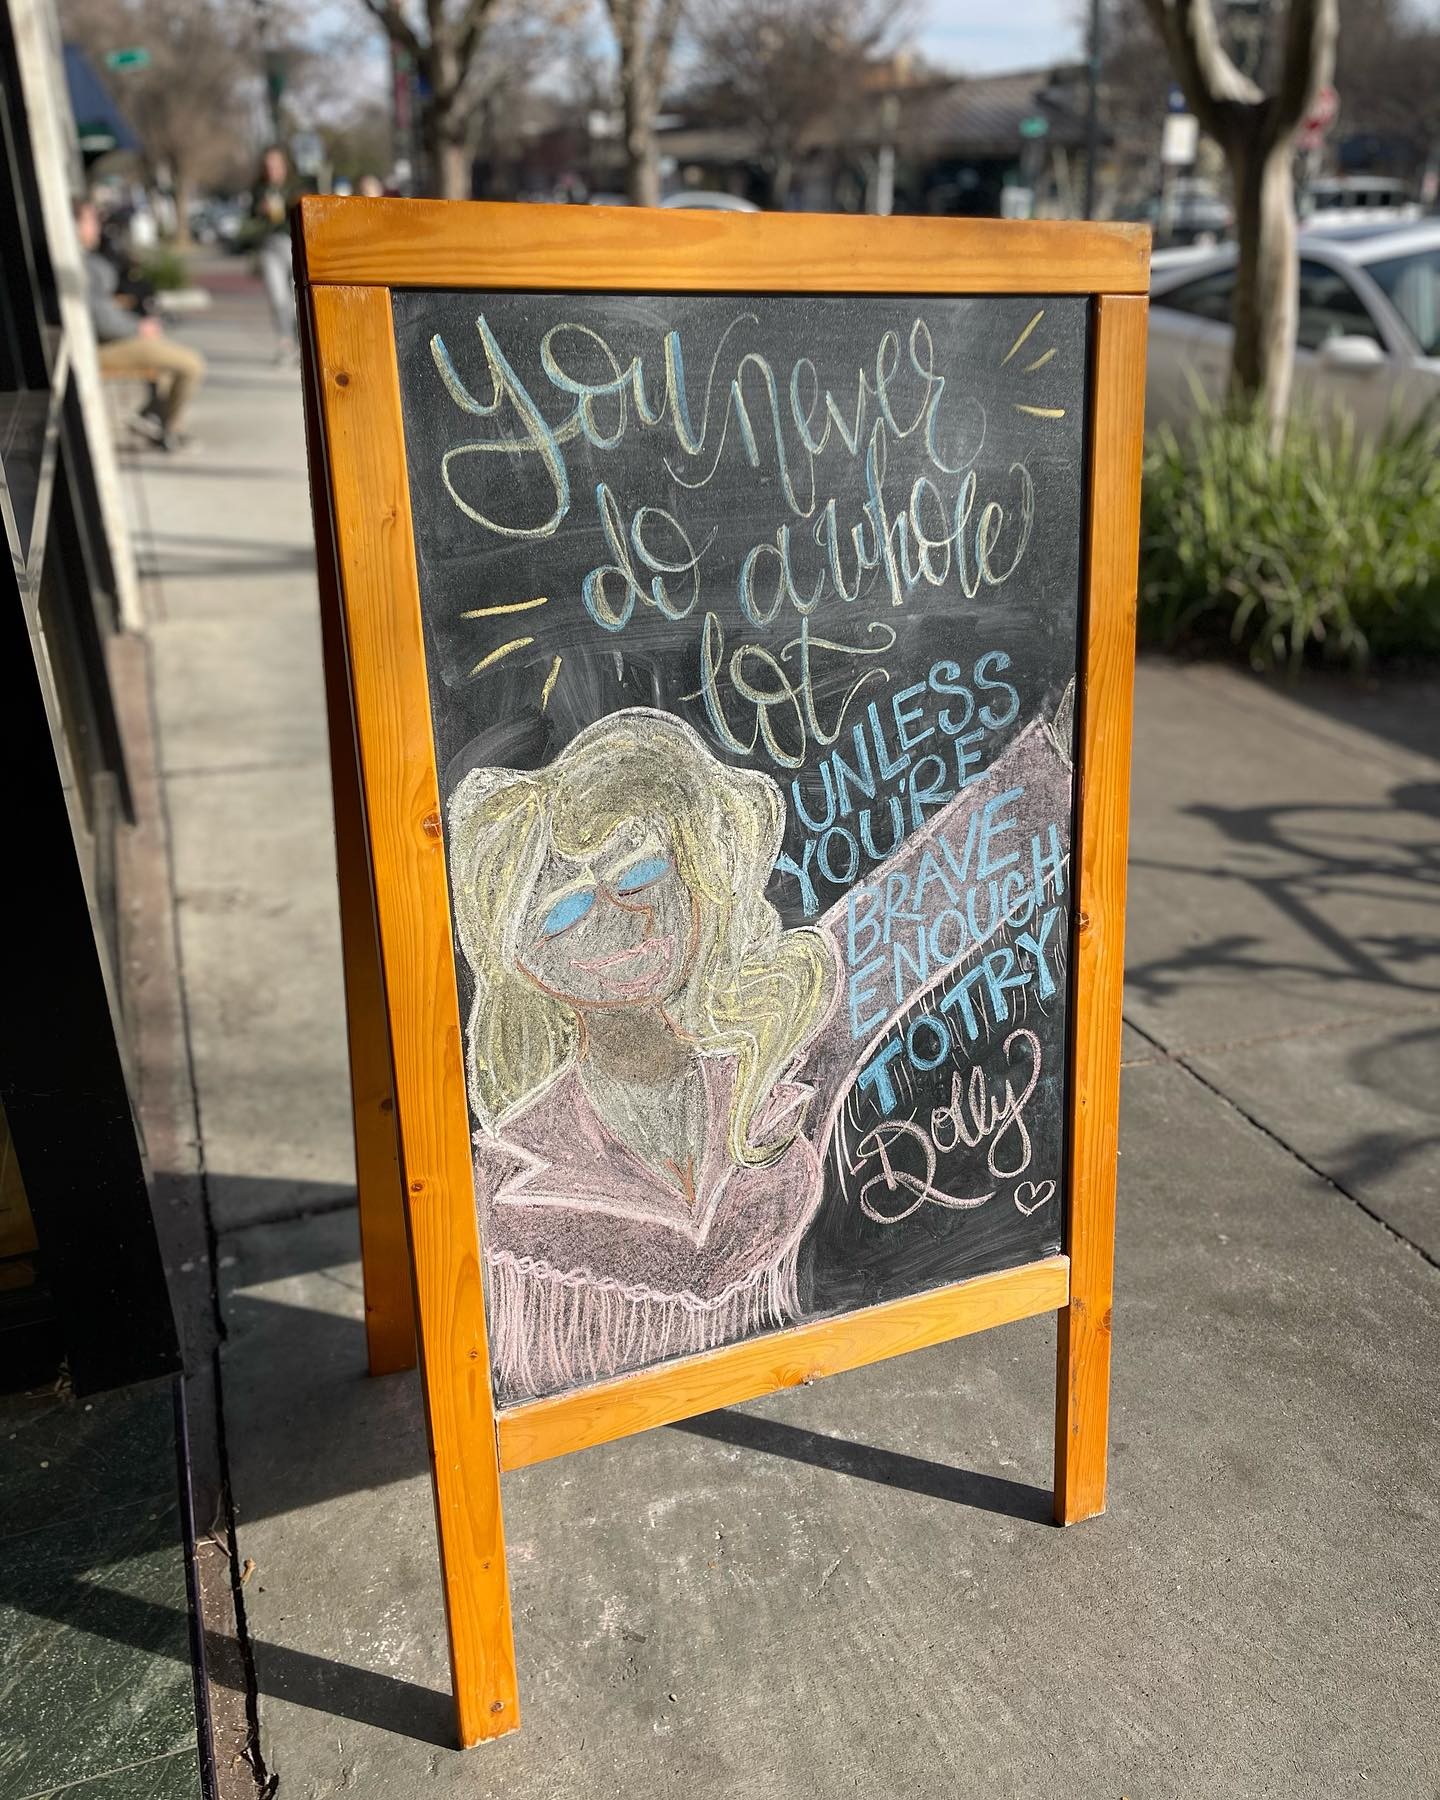 You never
do a whole
lot
UNLESS
YOU'RE
BRAVE
ENOUGH
TO TRY
Dolly